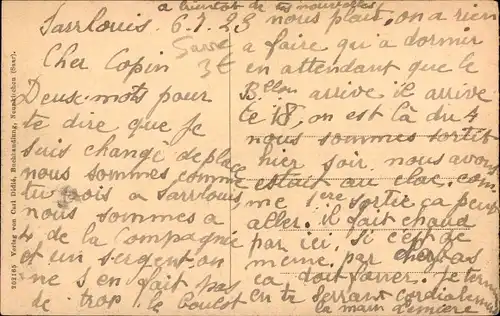 a bientôt de tes nouvelles
Sarrlouis 6.7.23
Sarre
Cher Copin
Deux mots pour
te dire que Je
suis changé de place
nous sommes comme
tu vois a Sarrlouis
nous sommes a
4 de la Compagnie
et un sergent on
ne s'en fait pas
de trop. le boulot
nous plait, on a rien
a faire qu'a dormir
en attendant que le
Bllon arrive il arrive
le 18, on est là du 4
nous sommes sortit
hier soir nous avons
estait au clac. com
me 1ere sortie ça peut
aller. il fait chaud
par ici. Si c'est de
meme par chez
ca doit barrer. Je termine
en te serrant cordialement
la main
762785 Verlag von Carl Rödel, Buchhandlung, Neunkirchen (Saar).